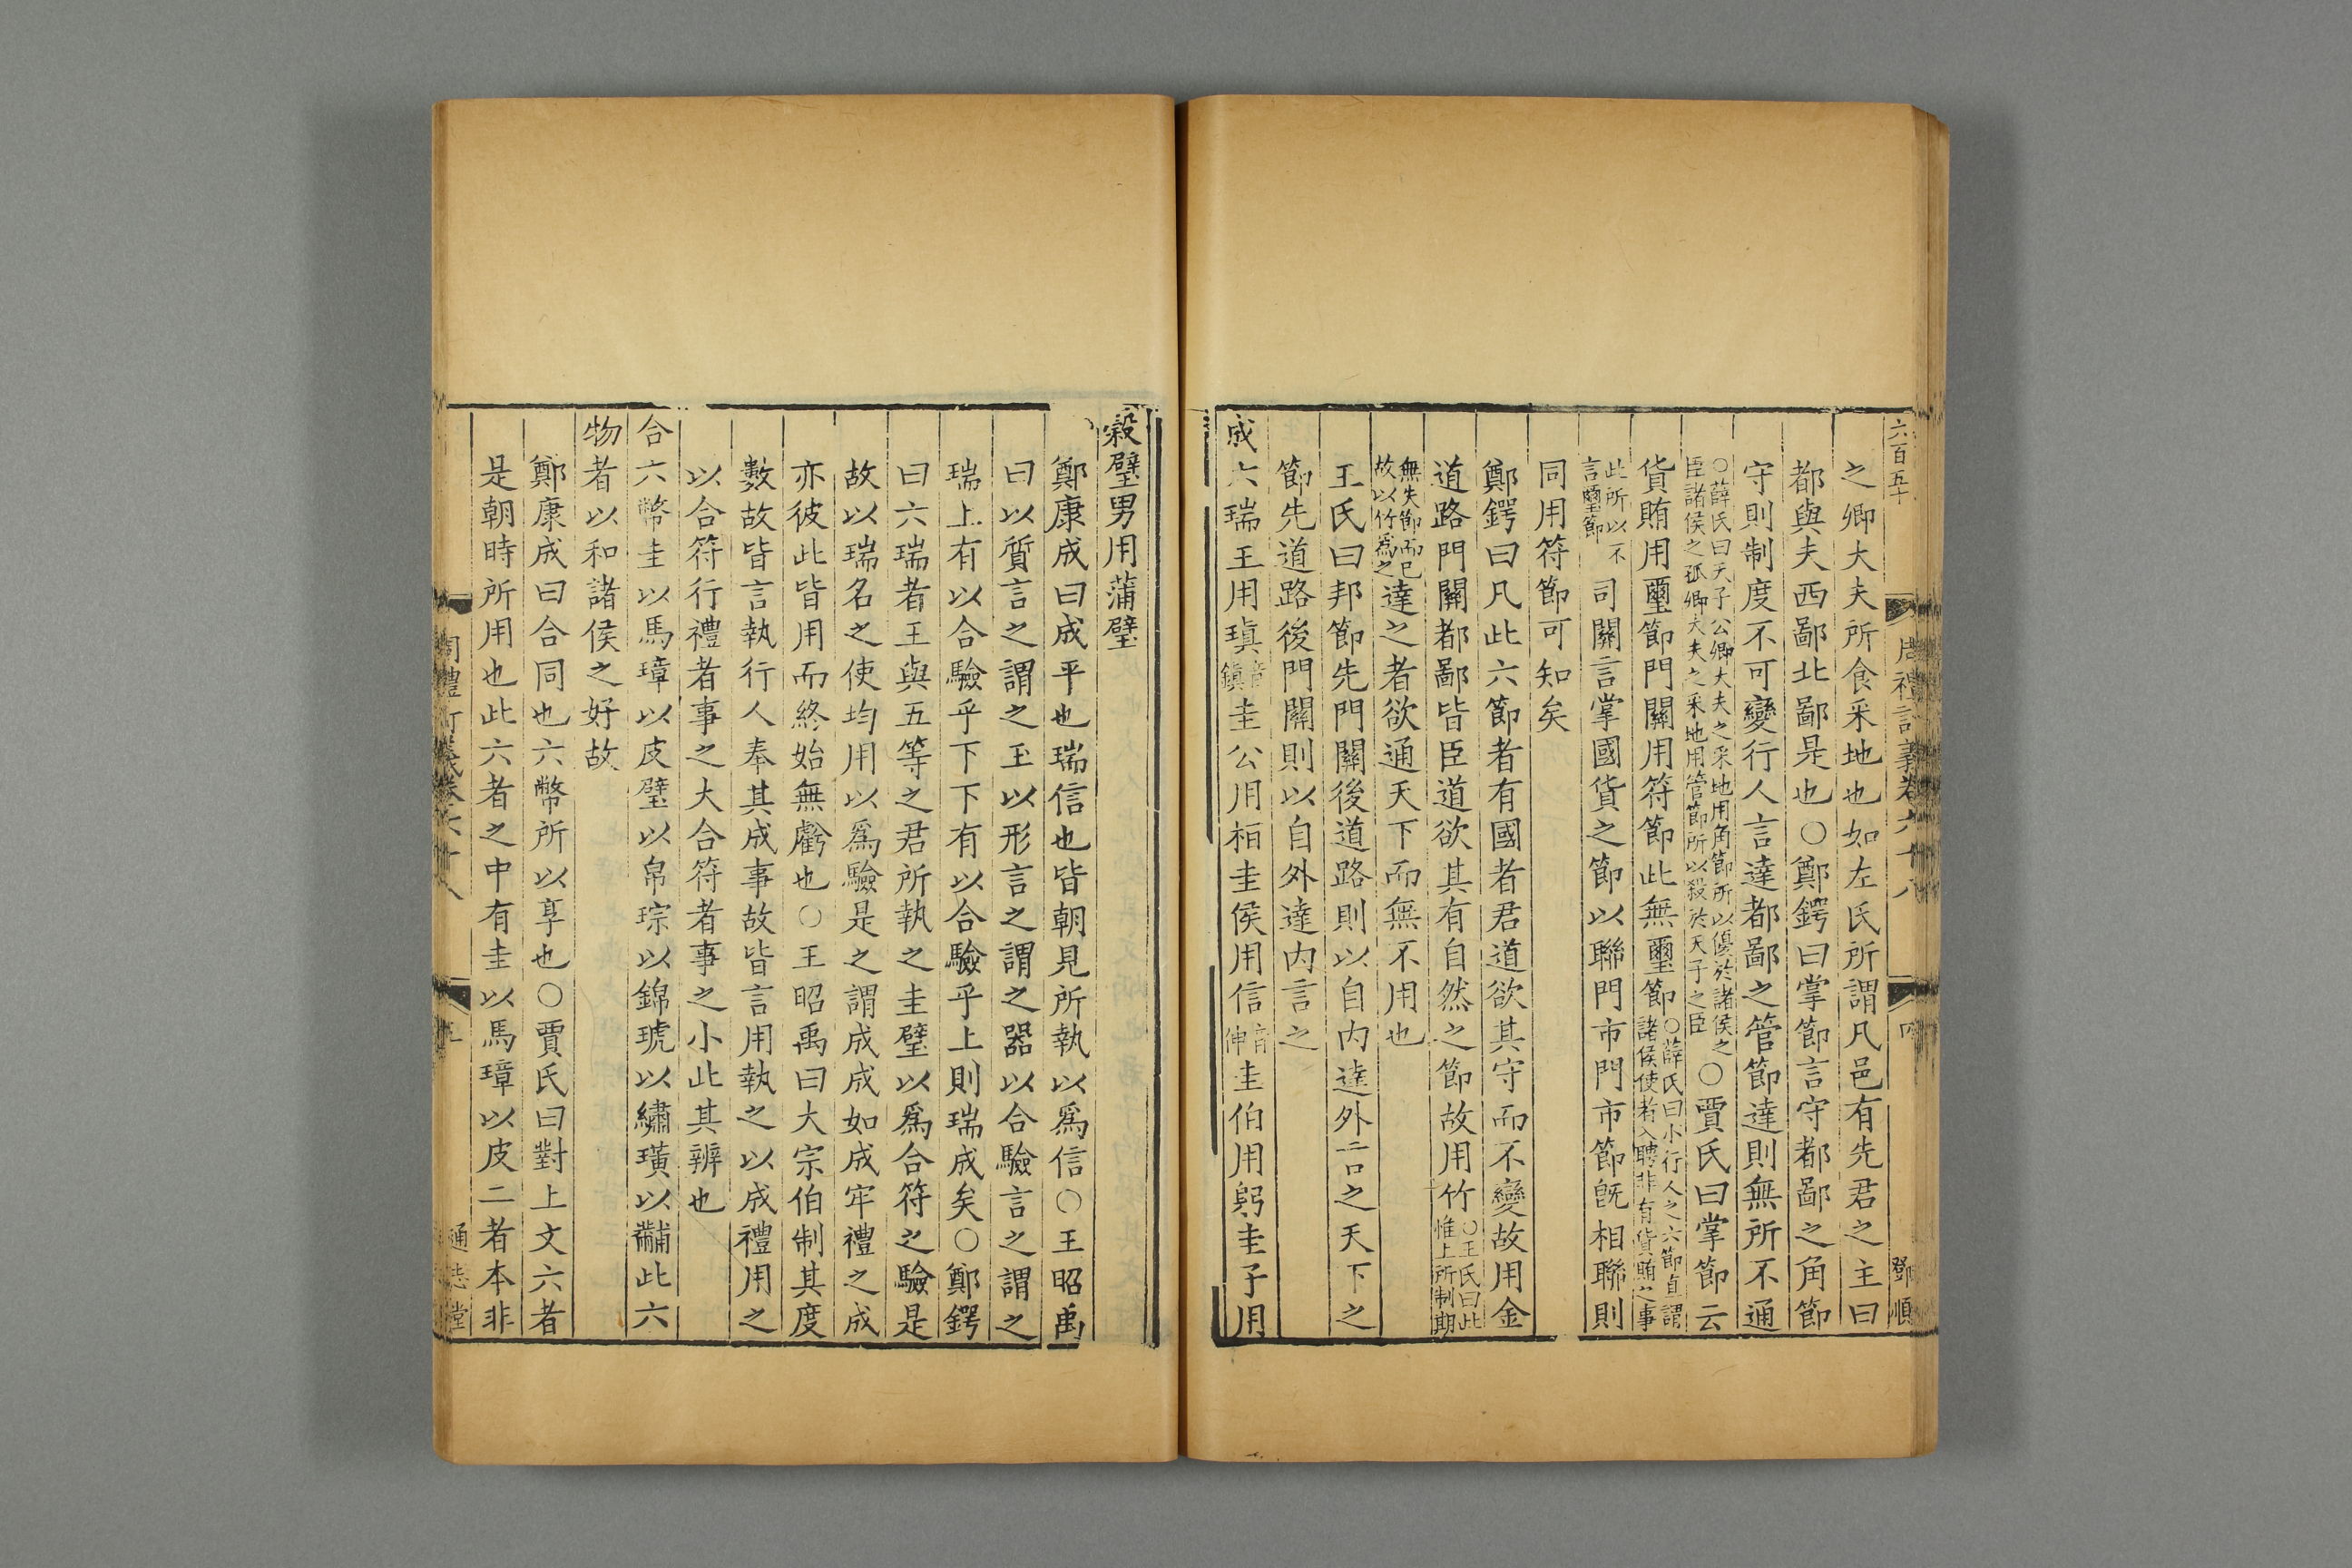 六百五十 周禮訂義卷六十八 四 鄧順
之卿大夫所食采地也如左氏所謂凡邑有先君之主曰
都與夫西鄙北鄙是也○鄭鍔曰掌節言守都鄙之角節
守則制度不可變行人言達都鄙之管節達則無所不通
○薛氏曰天子公卿大夫之采地用角節所以優於諸侯之
臣諸侯之孤卿大夫之采地用管節所以殺於天子之臣
○賈氏曰掌節云
貨賄用璽節門關用符節此無璽節
○薛氏曰小行人之六節直謂
諸侯使者入聘非有貨賄之事
此所以不
言璽節
司關言掌國貨之節以聯門市門市節旣相聯則
同用符節可知矣
鄭鍔曰凡此六節者有國者君道欲其守而不變故用金
道路門關都鄙皆臣道欲其有自然之節故用竹
○王氏曰此
惟上所制期
無失節而已
故以竹爲之
達之者欲通天下而無不用也
王氏曰邦節先門關後道路則以自内達外言之天下之
節先道路後門關則以自外達内言之
成六瑞王用瑱
音
鎭
圭公用桓圭侯用信
音
伸
圭伯用躬圭子用
穀璧男用蒲璧
鄭康成曰成平也瑞信也皆朝見所執以爲信○王昭禹
曰以質言之謂之玉以形言之謂之器以合驗言之謂之
瑞上有以合驗乎下下有以合驗乎上則瑞成矣○鄭鍔
曰六瑞者王與五等之君所執之圭璧以爲合符之驗是
故以瑞名之使均用以爲驗是之謂成成如成牢禮之成
亦彼此皆用而終始無虧也○王昭禹曰大宗伯制其度
數故皆言執行人奉其成事故皆言用執之以成禮用之
以合符行禮者事之大合符者事之小此其辨也
合六幣圭以馬璋以皮璧以帛琮以錦琥以繡璜以黼此六
物者以和諸侯之好故
鄭康成曰合同也六幣所以享也○賈氏曰對上文六者
是朝時所用也此六者之中有圭以馬璋以皮二者本非
周禮訂義卷六十八 五 通志堂